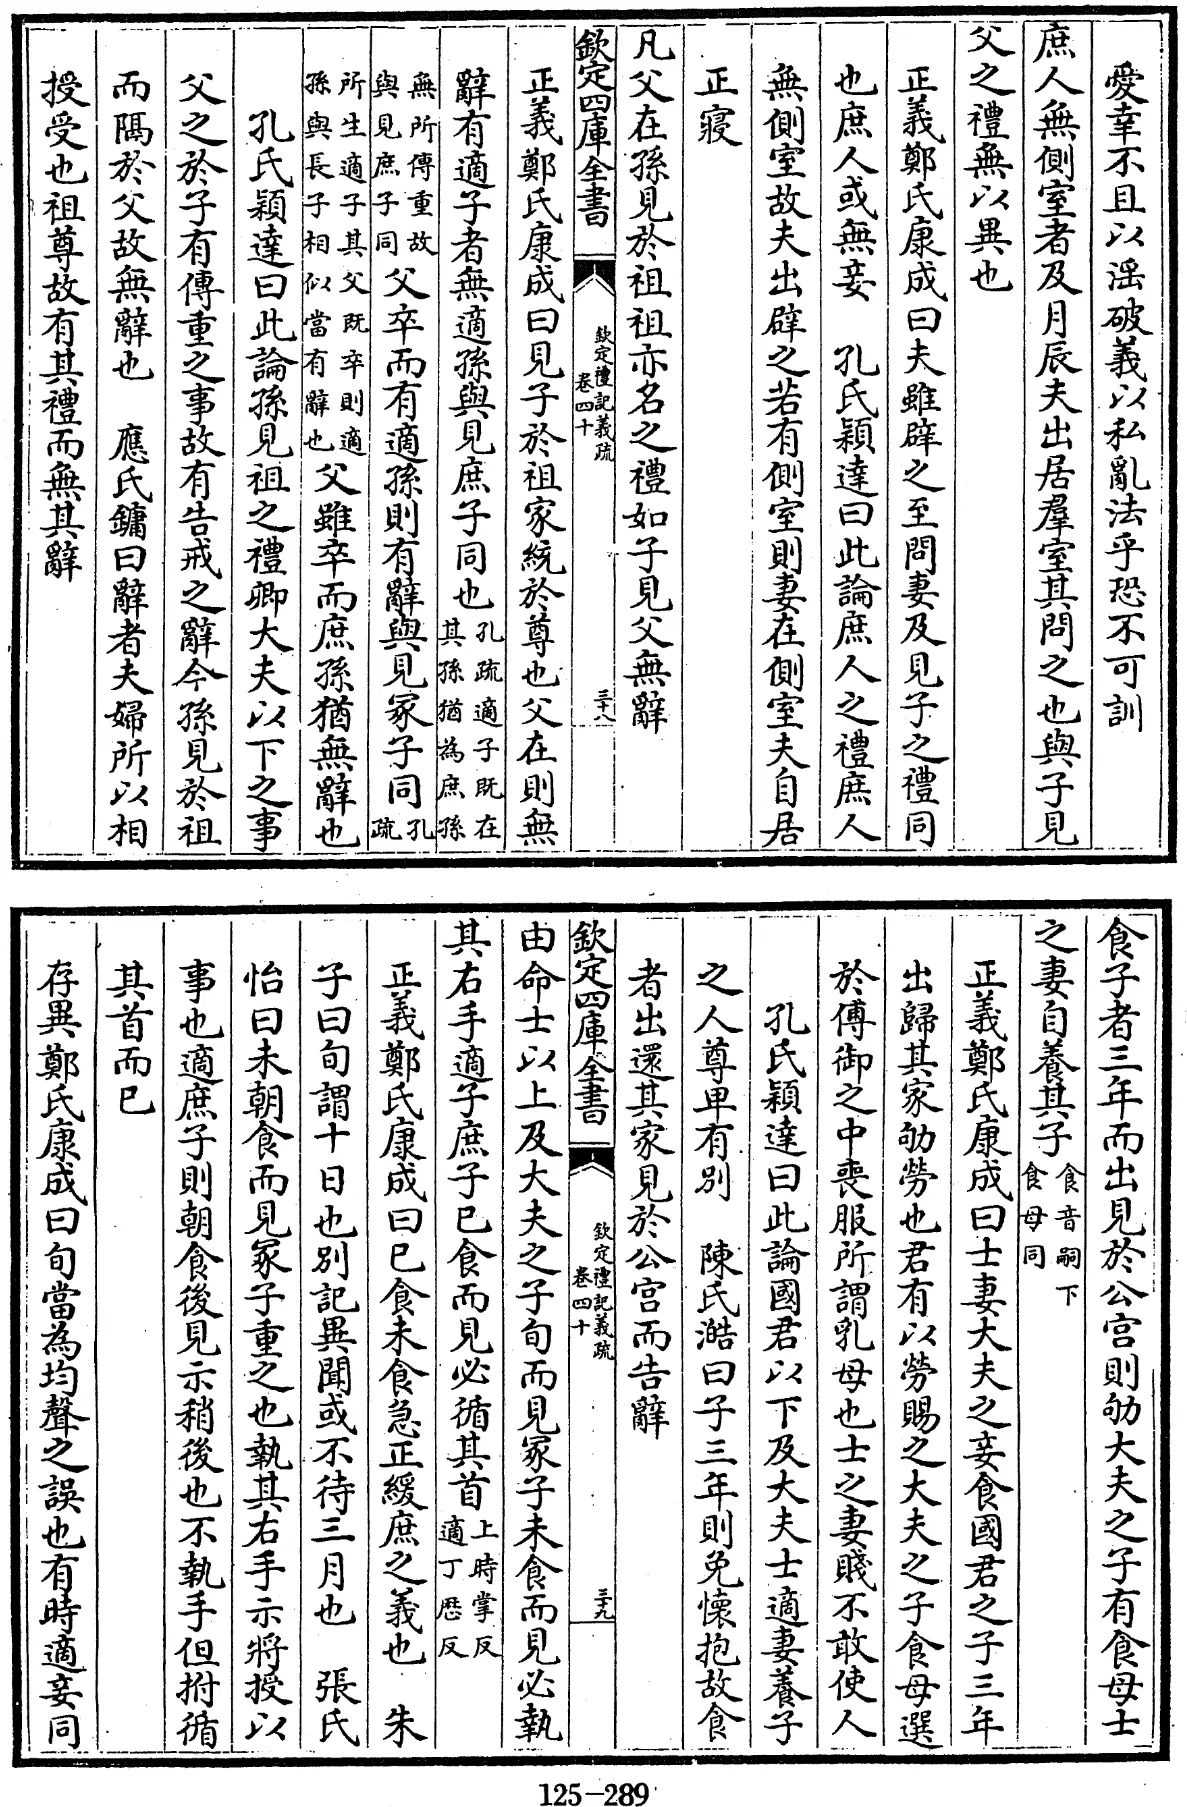 愛幸不且以滛破義以私亂法乎恐不可訓
庶人無側室者及月辰夫出居羣室其問之也與子見
父之禮無以異也
正義鄭氏康成曰夫雖辟之至問妻及見子之禮同
也庶人或無妾　孔氏穎達曰此論庶人之禮庶人
無側室故夫出辟之若有側室則妻在側室夫自居
正寢
凡父在孫見於祖祖亦名之禮如子見父無辭
欽定四庫全書
欽定禮記義疏
卷四十
三十八
正義鄭氏康成曰見子於祖家統於尊也父在則無
辭有適子者無適孫與見庶子同也孔疏適子既在其孫猶為庶孫
無所傳重故與見庶子同父卒而有適孫則有辭與見冢子同孔疏
所生適子其父既卒則適孫與長子相似當有辭也父雖卒而庶孫猶無辭也
孔氏穎達曰此論孫見祖之禮卿大夫以下之事
父之於子有傳重之事故有告戒之辭今孫見於祖
而隔於父故無辭也　應氏鏞曰辭者夫婦所以相
授受也祖尊故有其禮而無其辭
食子者三年而出見於公宫則劬大夫之子有食母士
之妻自養其子食音嗣下食母同
正義鄭氏康成曰士妻大夫之妾食國君之子三年
出歸其家劬勞也君有以勞賜之大夫之子食母選
於傅御之中喪服所謂乳母也士之妻賤不敢使人
孔氏穎達曰此論國君以下及大夫士適妻養子
之人尊卑有別　陳氏澔曰子三年則免懷抱故食
者出還其家見於公宫而告辭
欽定四庫全書
欽定禮記義疏
卷四十
三十九
由命士以上及大夫之子旬而見冢子未食而見必執
其右手適子庶子已食而見必循其首上時掌反適丁歷反
正義鄭氏康成曰已食未食急正緩庶之義也　朱
子曰旬謂十日也別記異聞或不待三月也　張氏
怡曰未朝食而見冢子重之也執其右手示將授以
事也適庶子則朝食後見示稍後也不執手但拊循
其首而已
存異鄭氏康成曰旬當為均聲之誤也有時適妾同
125-289